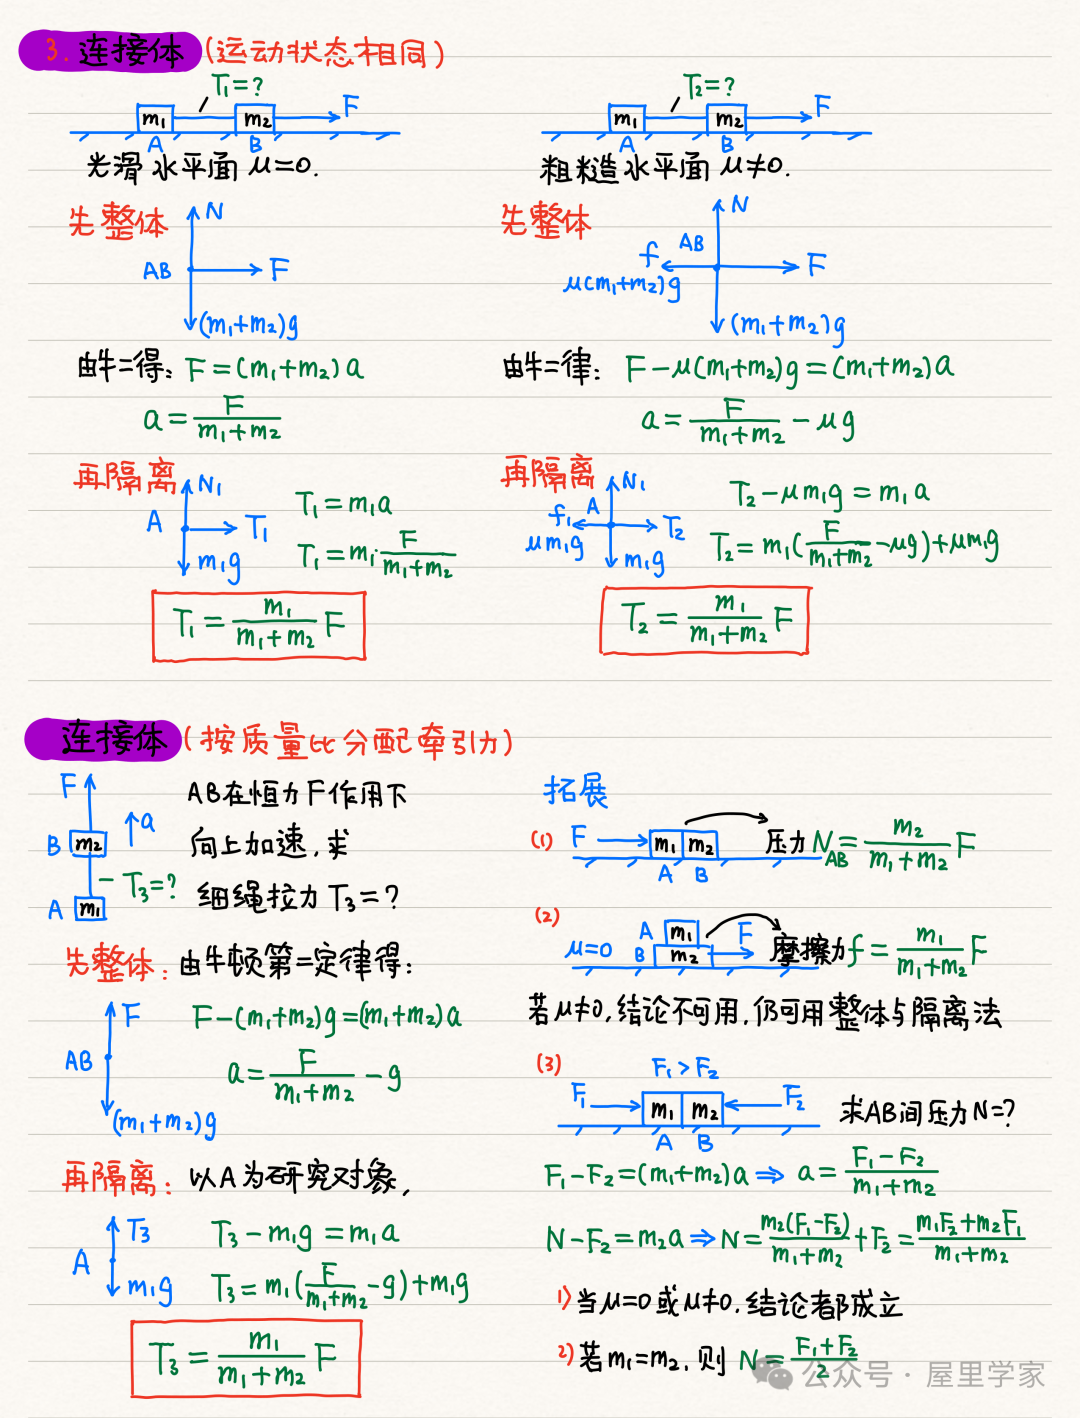 3. 连接体 (运动状态相同)
T₁=?
m₁ m₂ F
A B
光滑水平面 μ=0.
先整体
N
AB F
(m₁+m₂)g
由牛二得: F=(m₁+m₂)a
a=F/(m₁+m₂)
再隔离
N₁
A T₁
m₁g
T₁=m₁a
T₁=m₁·F/(m₁+m₂)
T₁=m₁/(m₁+m₂) F
T₂=?
m₁ m₂ F
A B
粗糙水平面 μ≠0.
先整体
N
f AB F
μ(m₁+m₂)g
(m₁+m₂)g
由牛二律: F-μ(m₁+m₂)g=(m₁+m₂)a
a=F/(m₁+m₂)-μg
再隔离
N₁
f₁ A T₂
μm₁g
m₁g
T₂-μm₁g=m₁a
T₂=m₁(F/(m₁+m₂)-μg)+μm₁g
T₂=m₁/(m₁+m₂) F
连接体 (按质量比分配牵引力)
F
a
B m₂
T₃=?
A m₁
AB在恒力F作用下
向上加速,求
细绳拉力T₃=?
先整体: 由牛顿第二定律得:
F
AB
(m₁+m₂)g
F-(m₁+m₂)g=(m₁+m₂)a
a=F/(m₁+m₂)-g
再隔离: 以A为研究对象,
T₃
A
m₁g
T₃-m₁g=m₁a
T₃=m₁(F/(m₁+m₂)-g)+m₁g
T₃=m₁/(m₁+m₂) F
拓展
(1) F m₁ m₂ 压力N_AB=m₂/(m₁+m₂) F
A B
(2)
μ=0 A m₁ F
B m₂
摩擦力f=m₁/(m₁+m₂) F
若μ≠0,结论不可用,仍可用整体与隔离法
(3) F₁>F₂
F₁ m₁ m₂ F₂
A B
求AB间压力N=?
F₁-F₂=(m₁+m₂)a⇒a=(F₁-F₂)/(m₁+m₂)
N-F₂=m₂a⇒N=m₂(F₁-F₂)/(m₁+m₂)+F₂=(m₁F₂+m₂F₁)/(m₁+m₂)
1) 当μ=0或μ≠0,结论都成立
2) 若m₁=m₂,则N=(F₁+F₂)/2
公众号·屋里学家